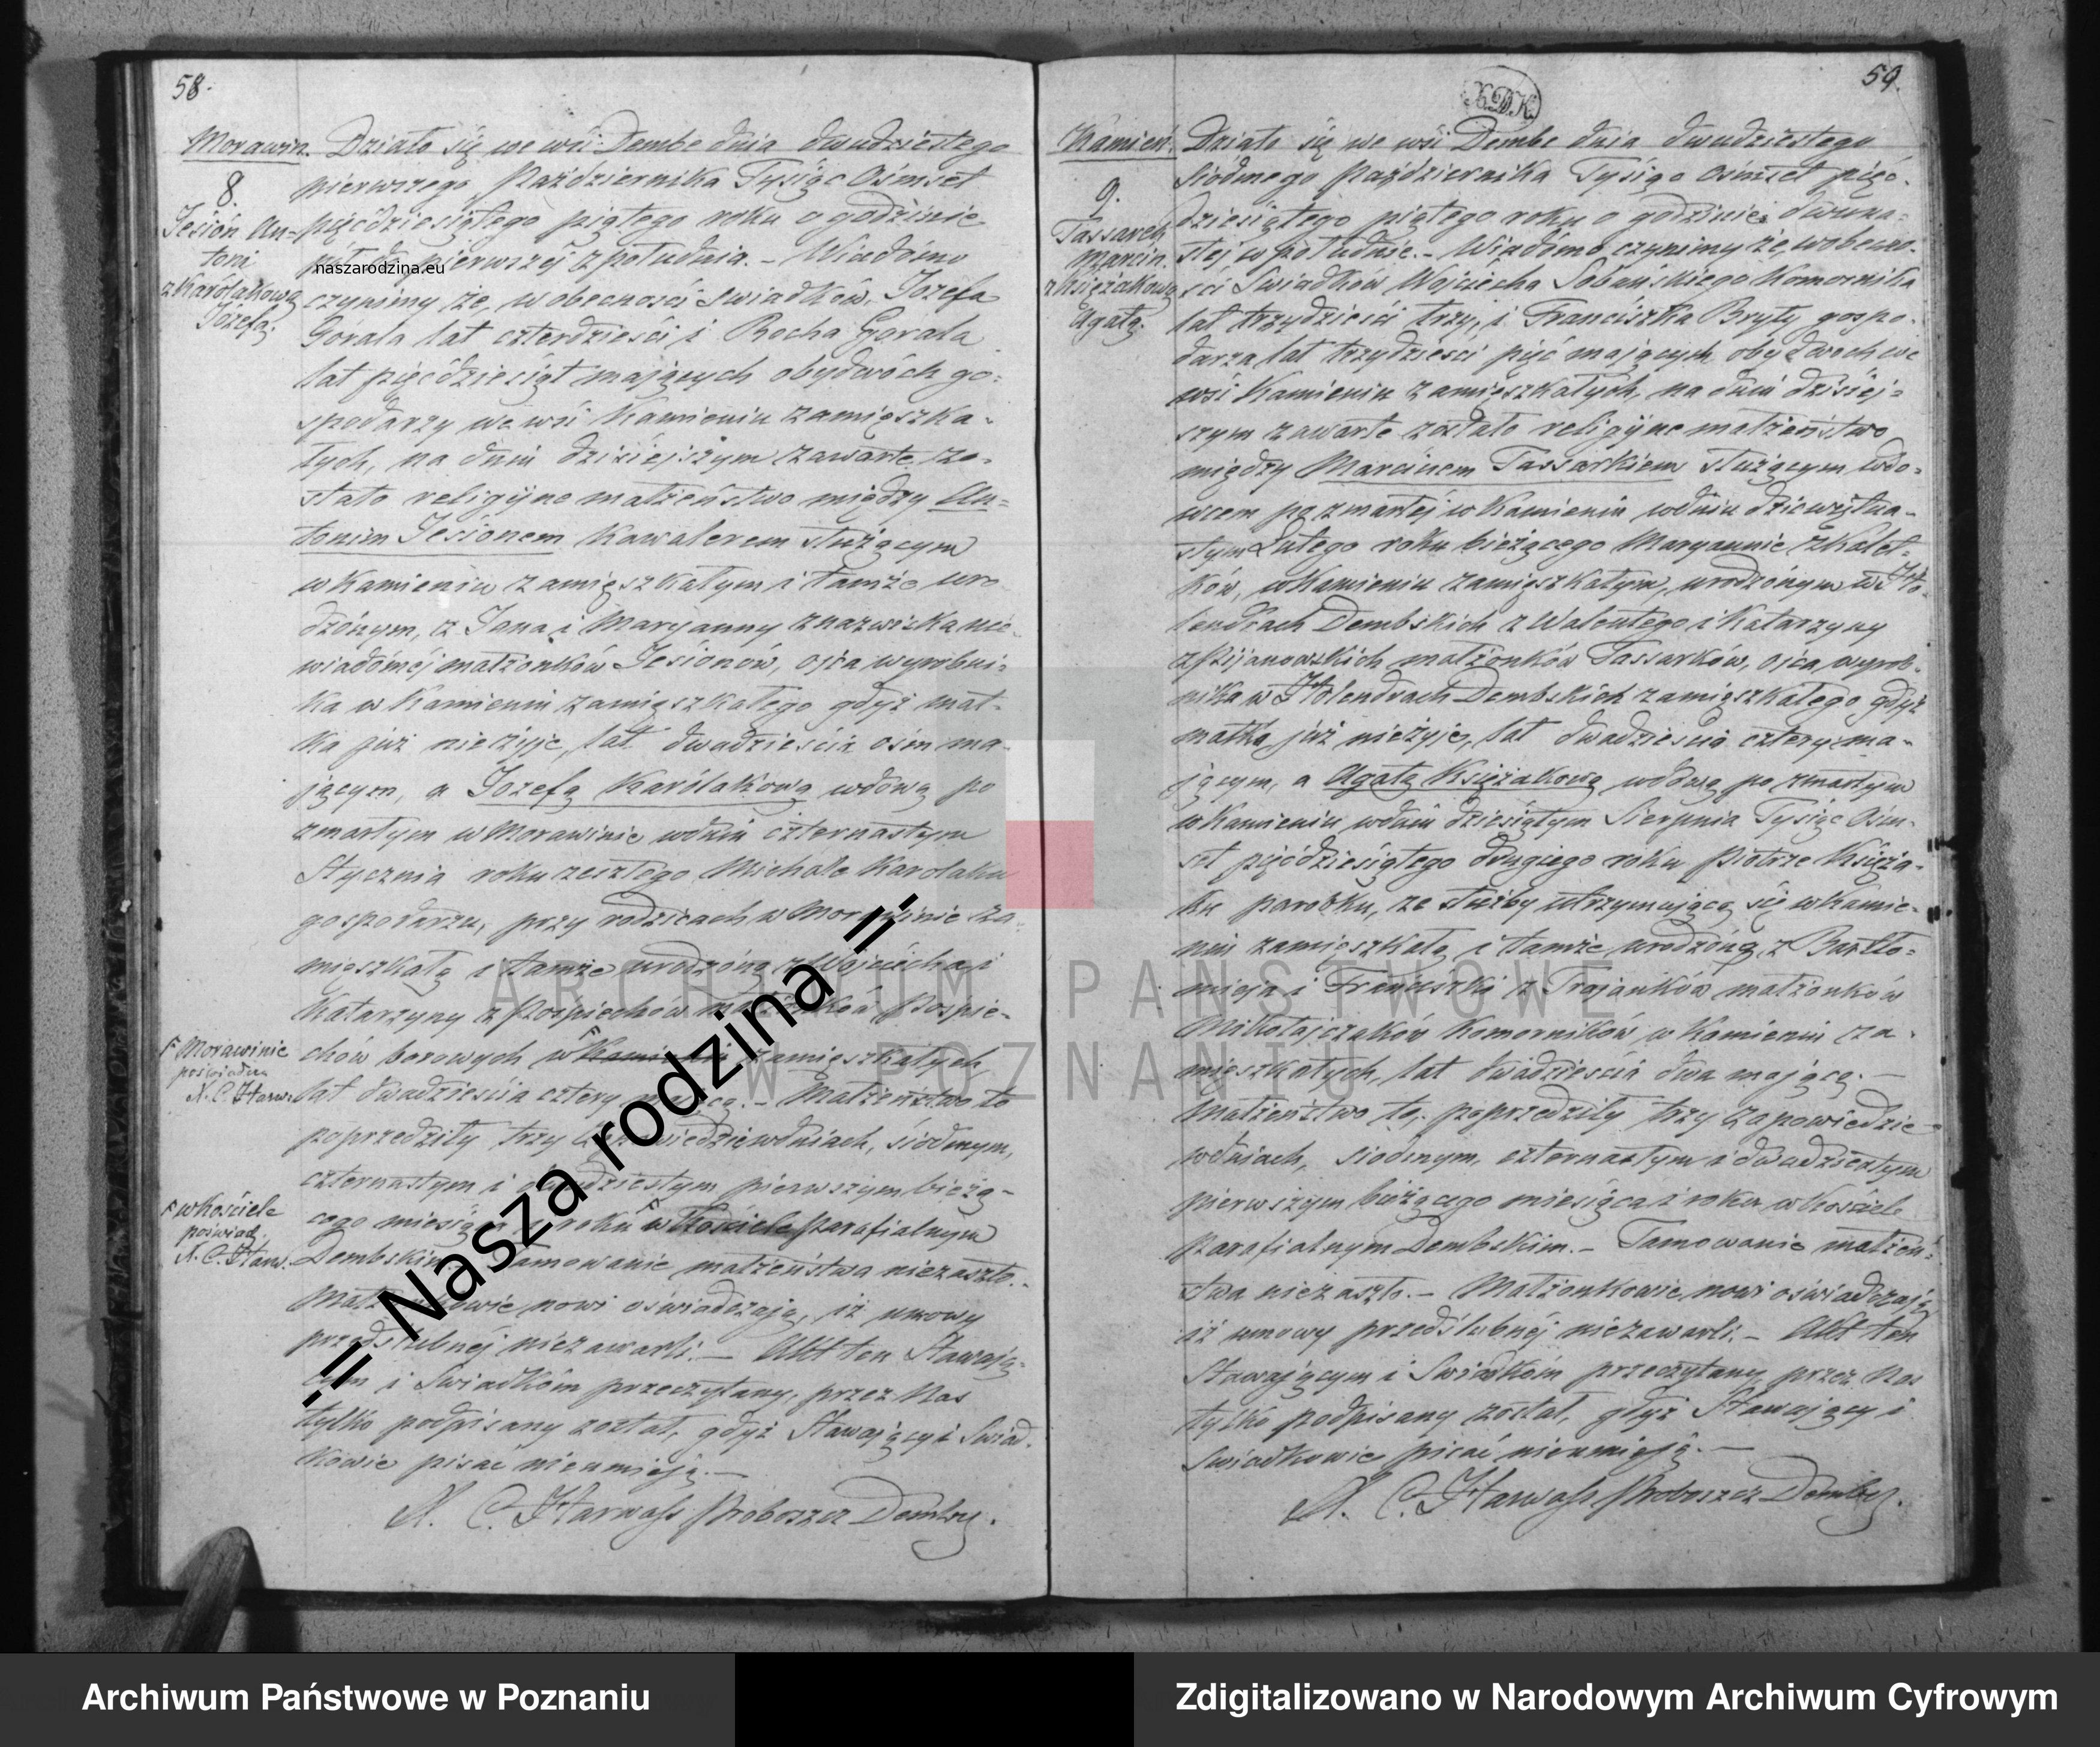 58.
Morawin.
8.
Jesión An=
toni
z Karólakową
Józefą.
Działo się we wsi Dembe dnia dwudziestego
pierwszego Października Tysiąc Ośmset
pięćdziesiątego piątego roku o godzinie
pierwszéj z południa. – Wiadomo
czynimy że, w obecności świadków, Józefa
Gorala lat czterdzieści i Rocha Gorala
lat pięćdziesiąt mających obydwóch go=
spodarzy we wsi Kamieniu zamięszka=
łych, na dniu dzisiejszym zawarte zo=
stało religijne małżeństwo między An=
tonim Jesionem Kawalerem służącym
w Kamieniu zamięszkałym i tamże uro
dzónym, z Jana i Maryanny z nazwiska nie=
wiadoméj małżonków Jesionów, ojca wyrobni=
ka w Kamieniu zamięszkałego gdyż mat=
ka już nieżyje, lat dwadzieścia ośm ma=
jącym, a Józefą Karólakową wdową po
zmarłym w Morawinie w dniu czternastym
Stycznia roku zeszłego Michale Karolaku
gospodarzu, przy rodzicach w Morawinie za=
mięszkałą i tamże urodzóną z Wojciecha i
Katarzyny z Pospiechów małżonków Pospie=
chów borowych w Kamieniu zamięszkałych,
lat dwadzieścia cztery mającą. – Małżeństwo to
poprzedziły trzy Zapowiedzie w dniach, siódmym,
czternastym i dwudziestym pierwszym bieżą=
cego miesiąca i roku w Kościele Parafialnym
Dembskim. Tamowanie małżeństwa niezaszło. –
Małżonkowie nowi oświadczają, iż umowy
przedślubnéj niezawarli. – Akt ten Stawają=
cym i Świadkóm przeczytany, przez Nas
tylko podpisany został, gdyż Stawający i Świad=
kowie pisać nieumieją. –
X. C. Harwass Proboszcz Demby.
Morawinie
poświadcza
X. C. Harw.
w Kościele
poświad.
X. C. Harw.
naszarodzina.eu
-= Nasza rodzina =-
59.
Kamień.
9.
Tassarek
Marcin.
z Księżakową
Agatą.
Działo się we wsi Dembe dnia dwudziestego
siódmego Października Tysiąc Ośmset pięć=
dziesiątego piątego roku o godzinie dwuna=
stej w południe. – Wiadomo czynimy że, w obecno=
ści Świadków Wojciecha Sobańskiego Komornika
lat trzydzieści trzy, i Franciszka Bryły gospo=
darza lat trzydzieści pięć mających obydwóch we
wsi Kamieniu zamięszkałych, na dniu dzisiej=
szym zawarte zostało religijne małżeństwo
między Marcinem Tassarkiem służącym wdo=
wcem po zmarłéj w Kamieniu w dniu dziewiętna=
stym Lutego roku bieżącego Maryannie z Kalet=
ków, w Kamieniu zamięszkałym, urodzónym w Ho=
lendrach Dembskich z Walentego i Katarzyny
z Pijanowskich małżonków Tassarków, ojca wyrob=
nika w Holendrach Dembskich zamięszkałego gdyż
matka już nieżyje, lat dwadzieścia cztery ma=
jącym, a Agatą Księżakową wdową po zmarłym
w Kamieniu w dniu dziesiątym Sierpnia Tysiąc Ośm=
set pięćdziesiątego drugiego roku Piotrze Księża=
ku parobku, ze służby utrzymującą się w Kamie=
niu zamięszkałą i tamże urodzóną z Bartło=
mieja i Franciszki z Trojanków małżonków
Mikołajczaków Komorników w Kamieniu za=
mięszkałych, lat dwadzieścia dwa mającą. –
Małżeństwo to poprzedziły trzy zapowiedzie
w dniach, siódmym, czternastym i dwudziestym
pierwszym bieżącego miesiąca i roku w Kościele
Parafialnym Dembskim. – Tamowanie małżeń=
stwa niezaszło. – Małżonkowie nowi oświadczają
iż umowy przedślubnéj niezawarli. – Akt ten
Stawającym i Świadkóm przeczytany, przez Nas
tylko podpisany został, gdyż Stawający i
Świadkowie pisać nieumieją. –
X. C. Harwass Proboszcz Demby.
ARCHIWUM PAŃSTWOWE
W POZNANIU
Archiwum Państwowe w Poznaniu
Zdigitalizowano w Narodowym Archiwum Cyfrowym